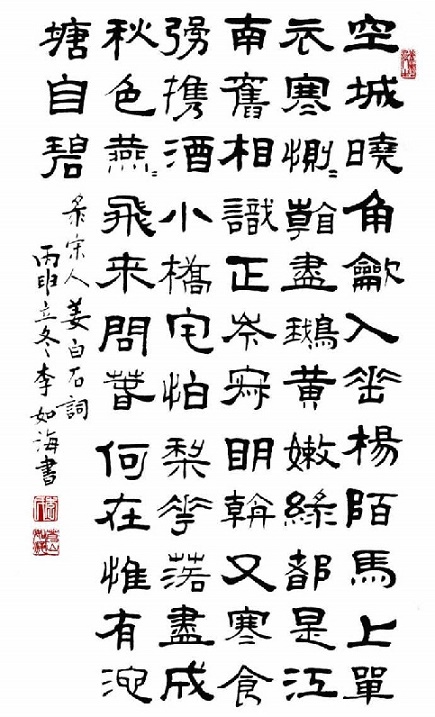 空城曉角龡入垂楊陌馬上單
衣寒惻〻看盡鵝黃嫩綠都是江
南舊相識正岑寂明朝又寒食
彊携酒小橋宅怕梨花落盡成
秋色燕〻飛來問春何在惟有池
塘自碧
录宋人姜白石詞
丙申立冬李如海書